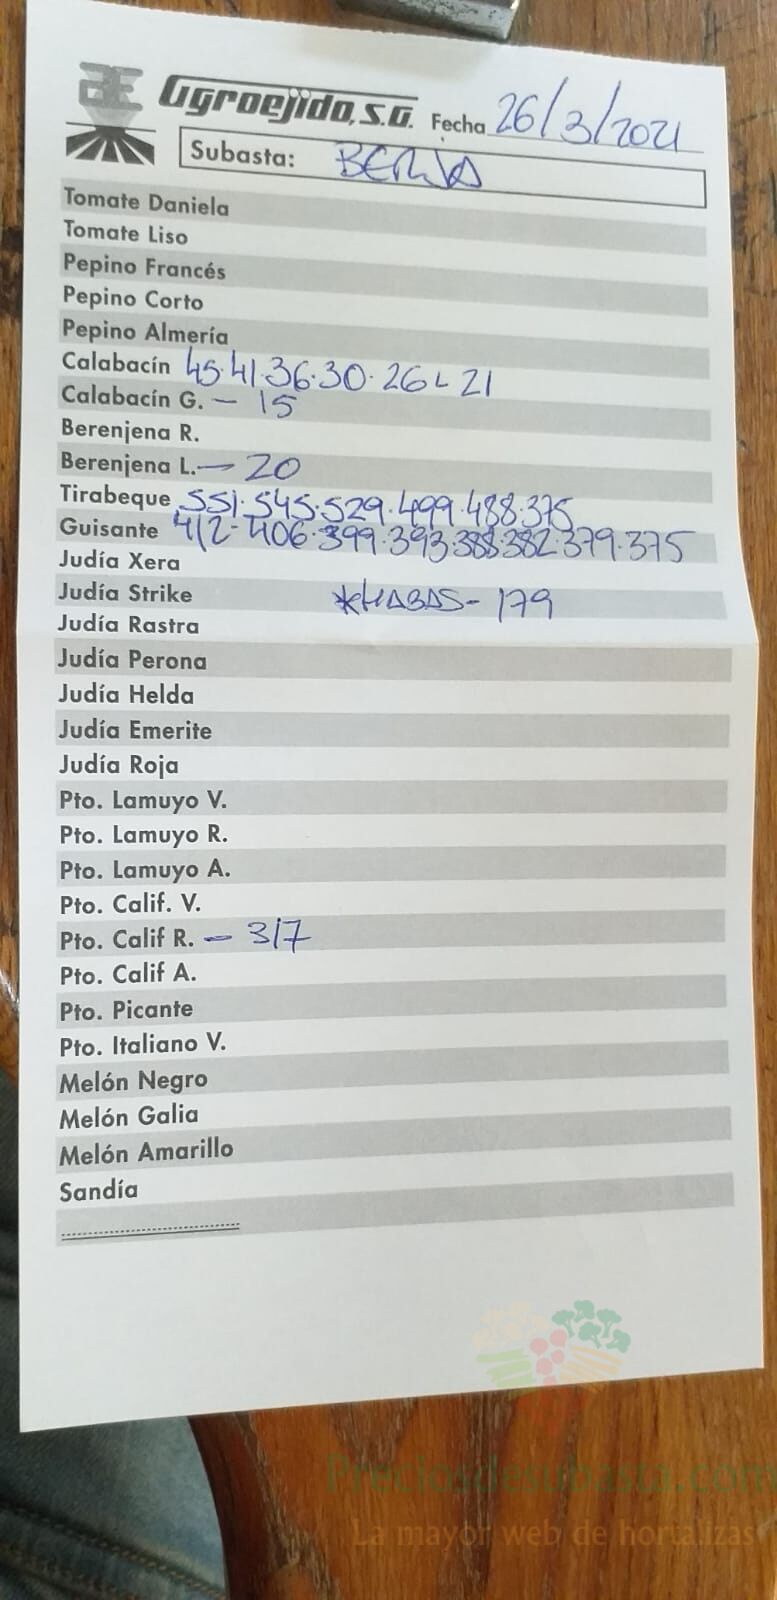 AE Agroejido, S.A. Fecha 26/3/2021
Subasta: BERJA
Tomate Daniela
Tomate Liso
Pepino Francés
Pepino Corto
Pepino Almería
Calabacín 45.41.36.30.26-21
Calabacín G. - 15
Berenjena R.
Berenjena L. - 20
Tirabeque 551.545.529.499.488.375
Guisante 412-406.399.393.388.382.379.375
Judía Xera
Judía Strike *HABAS- 179
Judía Rastra
Judía Perona
Judía Helda
Judía Emerite
Judía Roja
Pto. Lamuyo V.
Pto. Lamuyo R.
Pto. Lamuyo A.
Pto. Calif. V.
Pto. Calif R. - 317
Pto. Calif A.
Pto. Picante
Pto. Italiano V.
Melón Negro
Melón Galia
Melón Amarillo
Sandía
Preciosdesubasta.com
La mayor web de hortalizas